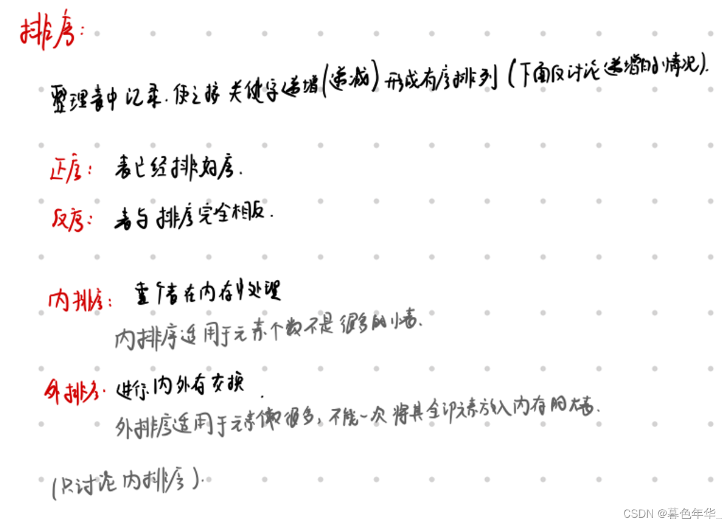 排序:
整理表中记录,使之按关键字递增(递减)形成有序排列(下面只讨论递增的情况).
正序: 表已经排好序.
反序: 表与排序完全相反.
内排序: 整个表在内存中处理
内排序适用于元素个数不是很多的小表.
外排序. 进行内外存交换.
外排序适用于元素个数很多,不能一次将其全部元素放入内存的大表.
(只讨论内排序).
CSDN @暮色年华_